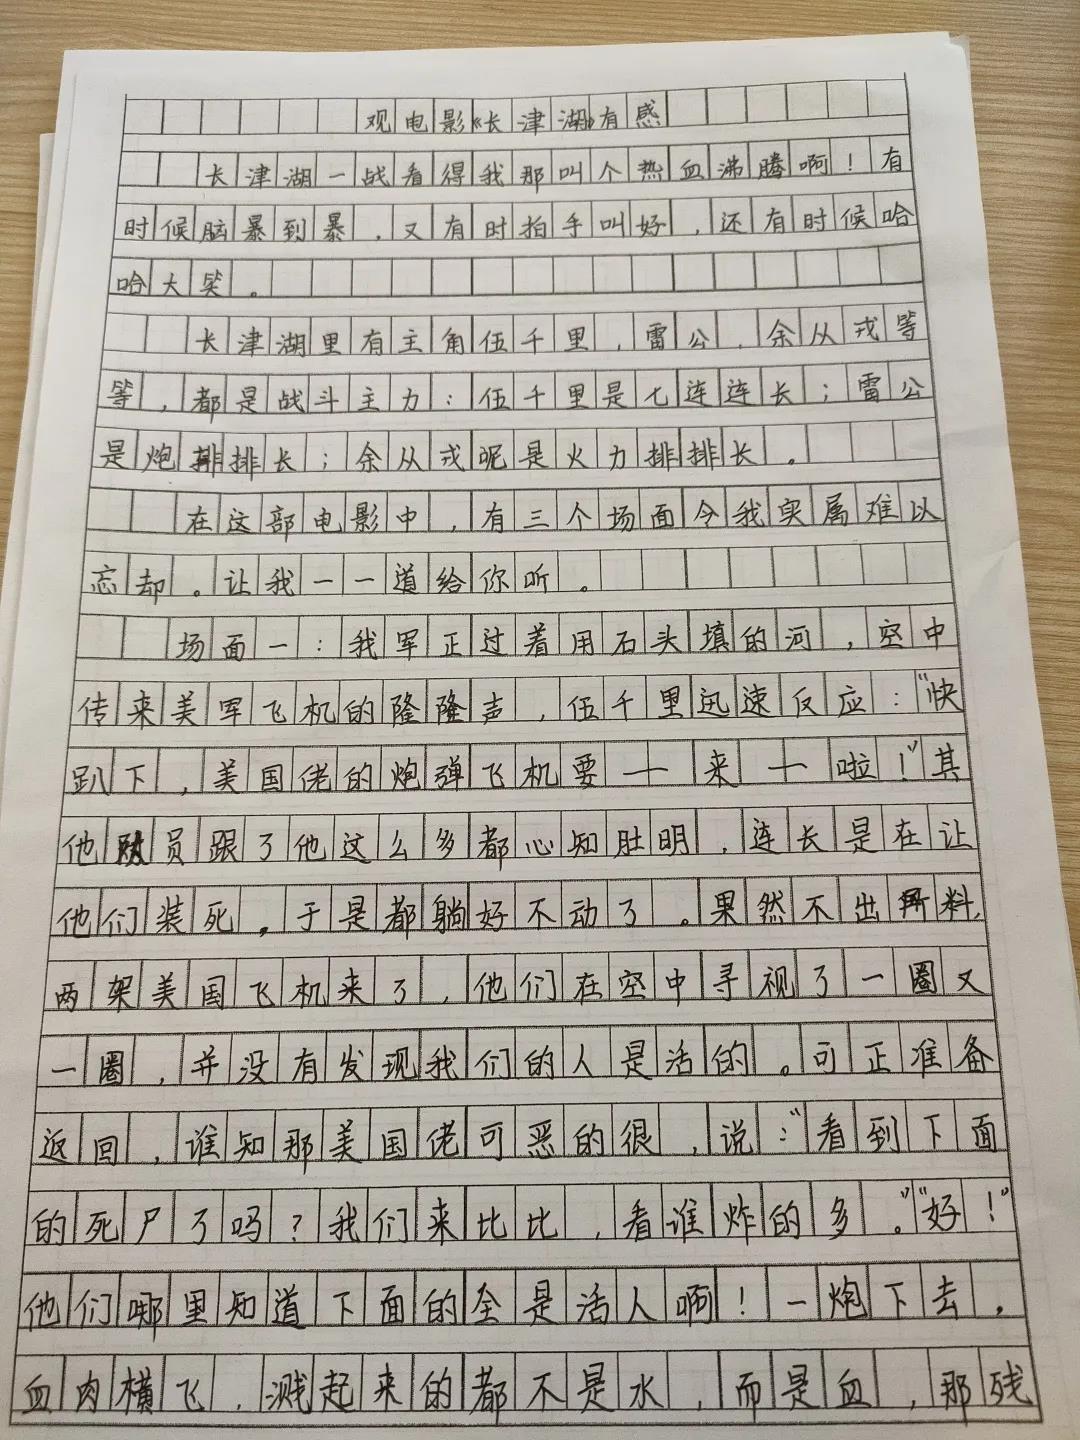 观电影《长津湖》有感
长津湖一战看得我那叫个热血沸腾啊！有
时候脑暴到暴，又有时拍手叫好，还有时候哈
哈大笑。
长津湖里有主角伍千里，雷公，余从戎等
等，都是战斗主力：伍千里是七连连长；雷公
是炮排排长；余从戎呢是火力排排长。
在这部电影中，有三个场面令我实属难以
忘却。让我一一道给你听。
场面一：我军正过着用石头填的河，空中
传来美军飞机的隆隆声，伍千里迅速反应：“快
趴下，美国佬的炮弹飞机要一来一啦！”其
他队员跟了他这么多都心知肚明，连长是在让
他们装死。于是都躺好不动了。果然不出所料，
两架美国飞机来了，他们在空中寻视了一圈又
一圈，并没有发现我们的人是活的。可正准备
返回，谁知那美国佬可恶的很，说：“看到下面
的死尸了吗？我们来比比，看谁炸的多。”“好！”
他们哪里知道下面的全是活人啊！一炮下去，
血肉横飞，溅起来的都不是水，而是血，那残